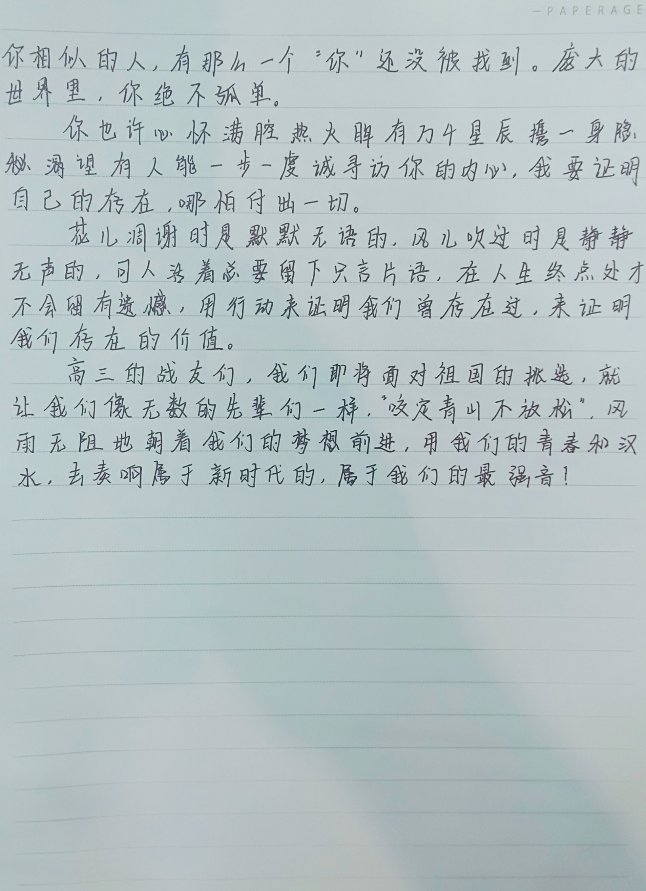 —PAPERAGE
你相似的人，有那么一个“你”还没被找到。庞大的
世界里，你绝不孤单。
你也许心怀满腔热火眸有万千星辰携一身隐
秘渴望有人能一步一虔诚寻访你的内心，我要证明
自己的存在，哪怕付出一切。
花儿凋谢时是默默无语的，风儿吹过时是静静
无声的，可人活着总要留下只言片语，在人生终点处才
不会留有遗憾，用行动来证明我们曾存在过，来证明
我们存在的价值。
高三的战友们，我们即将面对祖国的挑选，就
让我们像无数的先辈们一样，“咬定青山不放松”，风
雨无阻地朝着我们的梦想前进，用我们的青春和汉
水，去奏啊属于新时代的，属于我们的最强音！